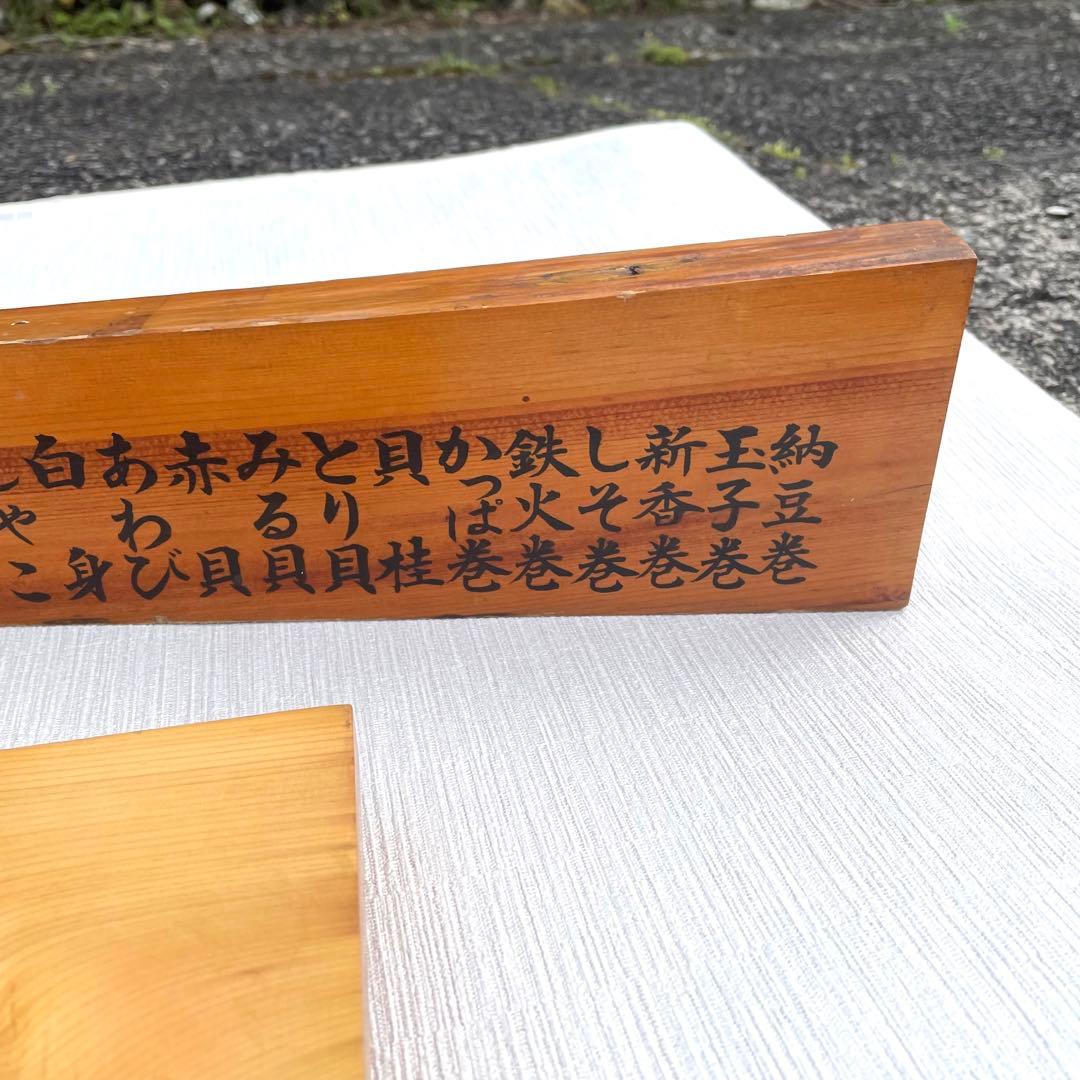 納豆巻
玉子巻
新香巻
しそ巻
鉄火巻
かっぱ巻
貝桂
とり貝
みる貝
赤貝
あわび
白身
しゃこ